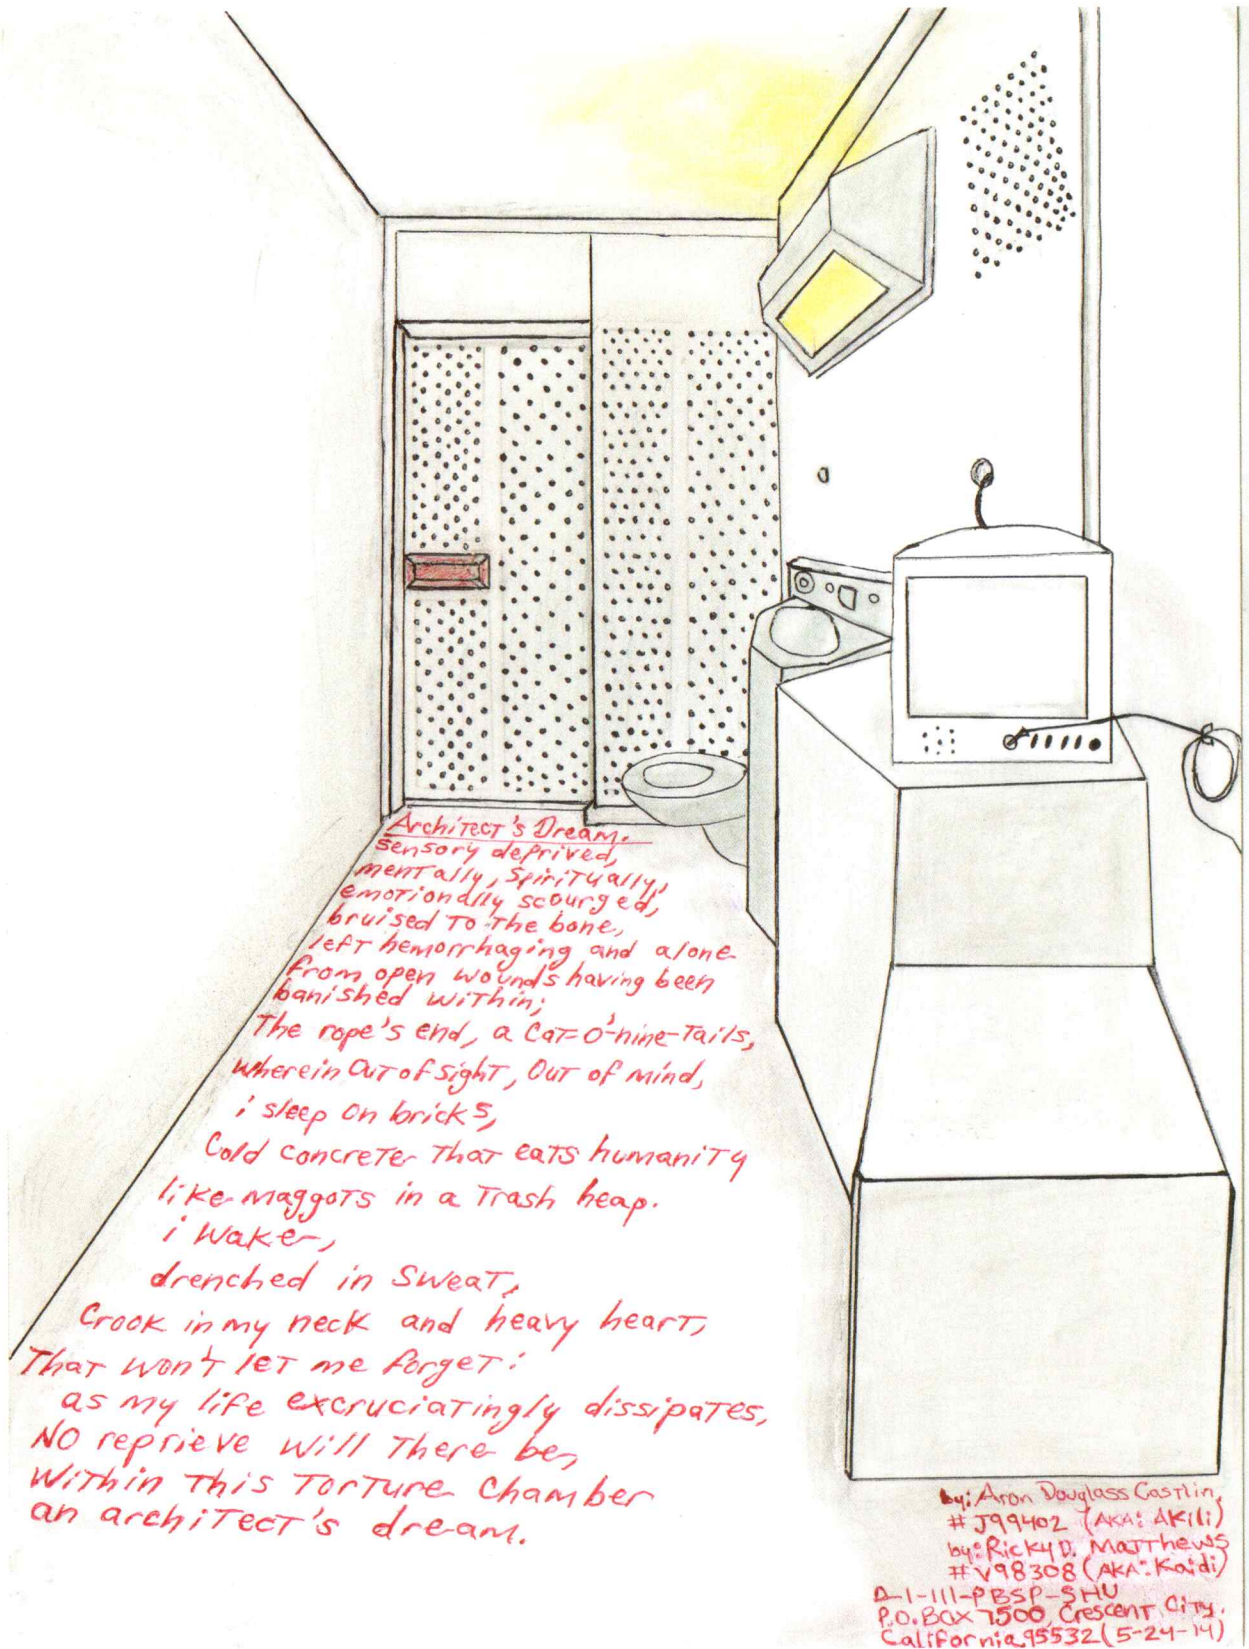 Architect's Dream.
sensory deprived,
mentally, spiritually,
emotionally scourged,
bruised to the bone,
left hemorrhaging and alone
from open wounds having been
banished within;
The rope's end, a Cat-O'-nine-Tails,
wherein Out of sight, Out of mind,
i sleep on bricks,
Cold concrete that eats humanity
like maggots in a trash heap.
i wake,
drenched in sweat,
Crook in my neck and heavy heart,
That won't let me forget:
as my life excruciatingly dissipates,
NO reprieve will there be,
Within this Torture Chamber
an architect's dream.
by: Aron Douglass Castlin,
# J99402 (AKA: Akili)
by: Ricky D. Matthews
# V98308 (AKA: Kaidi)
D-1-111-PBSP-SHU
P.O. Box 7500, Crescent City,
California. 95532 (5-24-14)